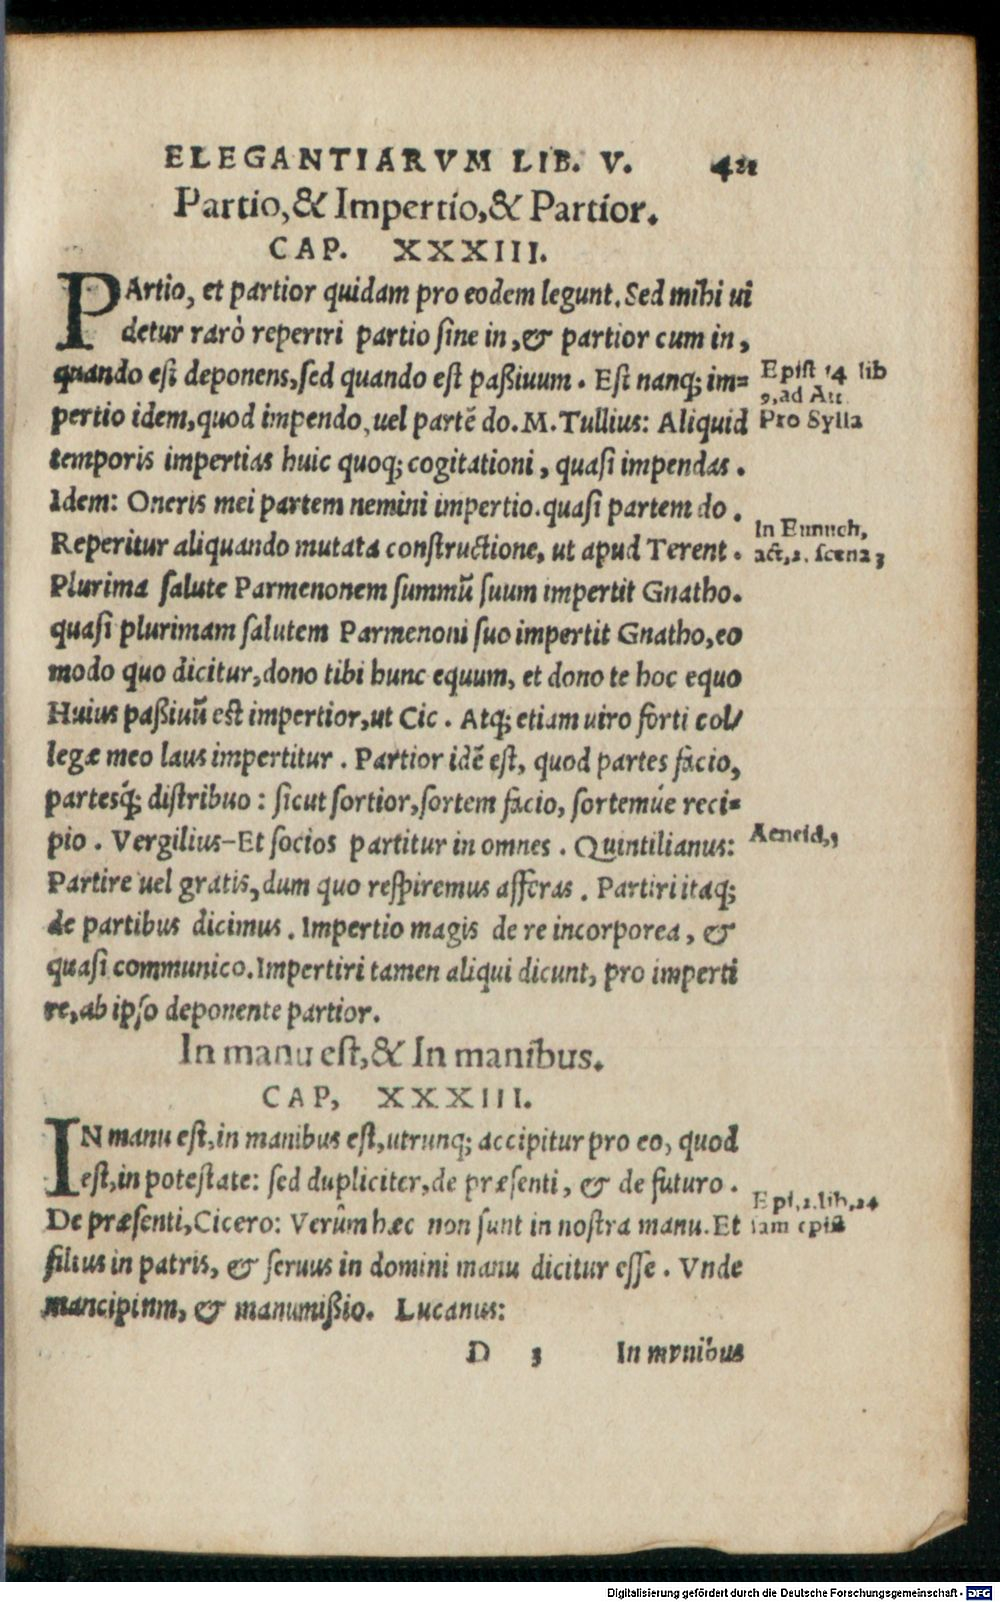 ELEGANTIARVM LIB. V. 421
Partio, & Impertio, & Partior.
CAP. XXXIII.
PArtio, et partior quidam pro eodem legunt. Sed mihi ui
detur rarò reperiri partio sine in, & partior cum in,
quando est deponens, sed quando est paßiuum. Est nanq; im=
pertio idem, quod impendo, uel partẽ do. M. Tullius: Aliquid
temporis impertias huic quoq; cogitationi, quasi impendas.
Idem: Oneris mei partem nemini impertio. quasi partem do.
Reperitur aliquando mutata constructione, ut apud Terent.
Plurima salute Parmenonem summũ suum impertit Gnatho.
quasi plurimam salutem Parmenoni suo impertit Gnatho, eo
modo quo dicitur, dono tibi hunc equum, et dono te hoc equo
Huius paßiuũ est impertior, ut Cic. Atq; etiam uiro forti col/
legæ meo laus impertitur. Partior idẽ est, quod partes facio,
partesq́; distribuo: sicut sortior, sortem facio, sortemúe reci=
pio. Vergilius—Et socios partitur in omnes. Quintilianus:
Partire uel gratis, dum quo respiremus afferas. Partiri itaq;
de partibus dicimus. Impertio magis de re incorporea, &
quasi communico. Impertiri tamen aliqui dicunt, pro imperti
re, ab ipso deponente partior.
Epist 14 lib
9, ad Att
Pro Sylla
In Eunuch,
act, 2. scena 3
Aeneid,
In manu est, & In manibus.
CAP, XXXIII.
IN manu est, in manibus est, utrunq; accipitur pro eo, quod
est, in potestate: sed dupliciter, de præsenti, & de futuro.
De præsenti, Cicero: Verûm hæc non sunt in nostra manu. Et
filius in patris, & seruus in domini manu dicitur esse. Vnde
mancipium, & manumißio. Lucanus:
Epi, lib, 14
epist
D 3 In mvnibus
Digitalisierung gefördert durch die Deutsche Forschungsgemeinschaft - DFG